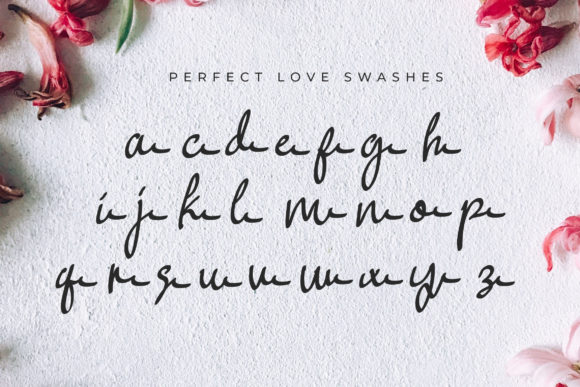 PERFECT LOVE SWASHES
a c d e f g h
i j k l m n o p
q r s u v w x y z